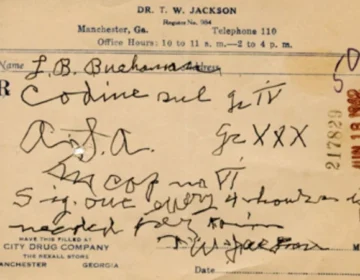 DR. T. W. JACKSON
Register No. 994
Manchester, Ga. Telephone 110
Office Hours: 10 to 11 a. m.—2 to 4 p. m.
Name L. B. Buchanan Address
R Codine sul gr IV
A.S.A. gr XXX
M cap no VI
Sig. one every 4 hours as
needed for pain
T W Jackson
HAVE THIS FILLED AT
CITY DRUG COMPANY
THE REXALL STORE
MANCHESTER GEORGIA
Date
217829
JUN 13